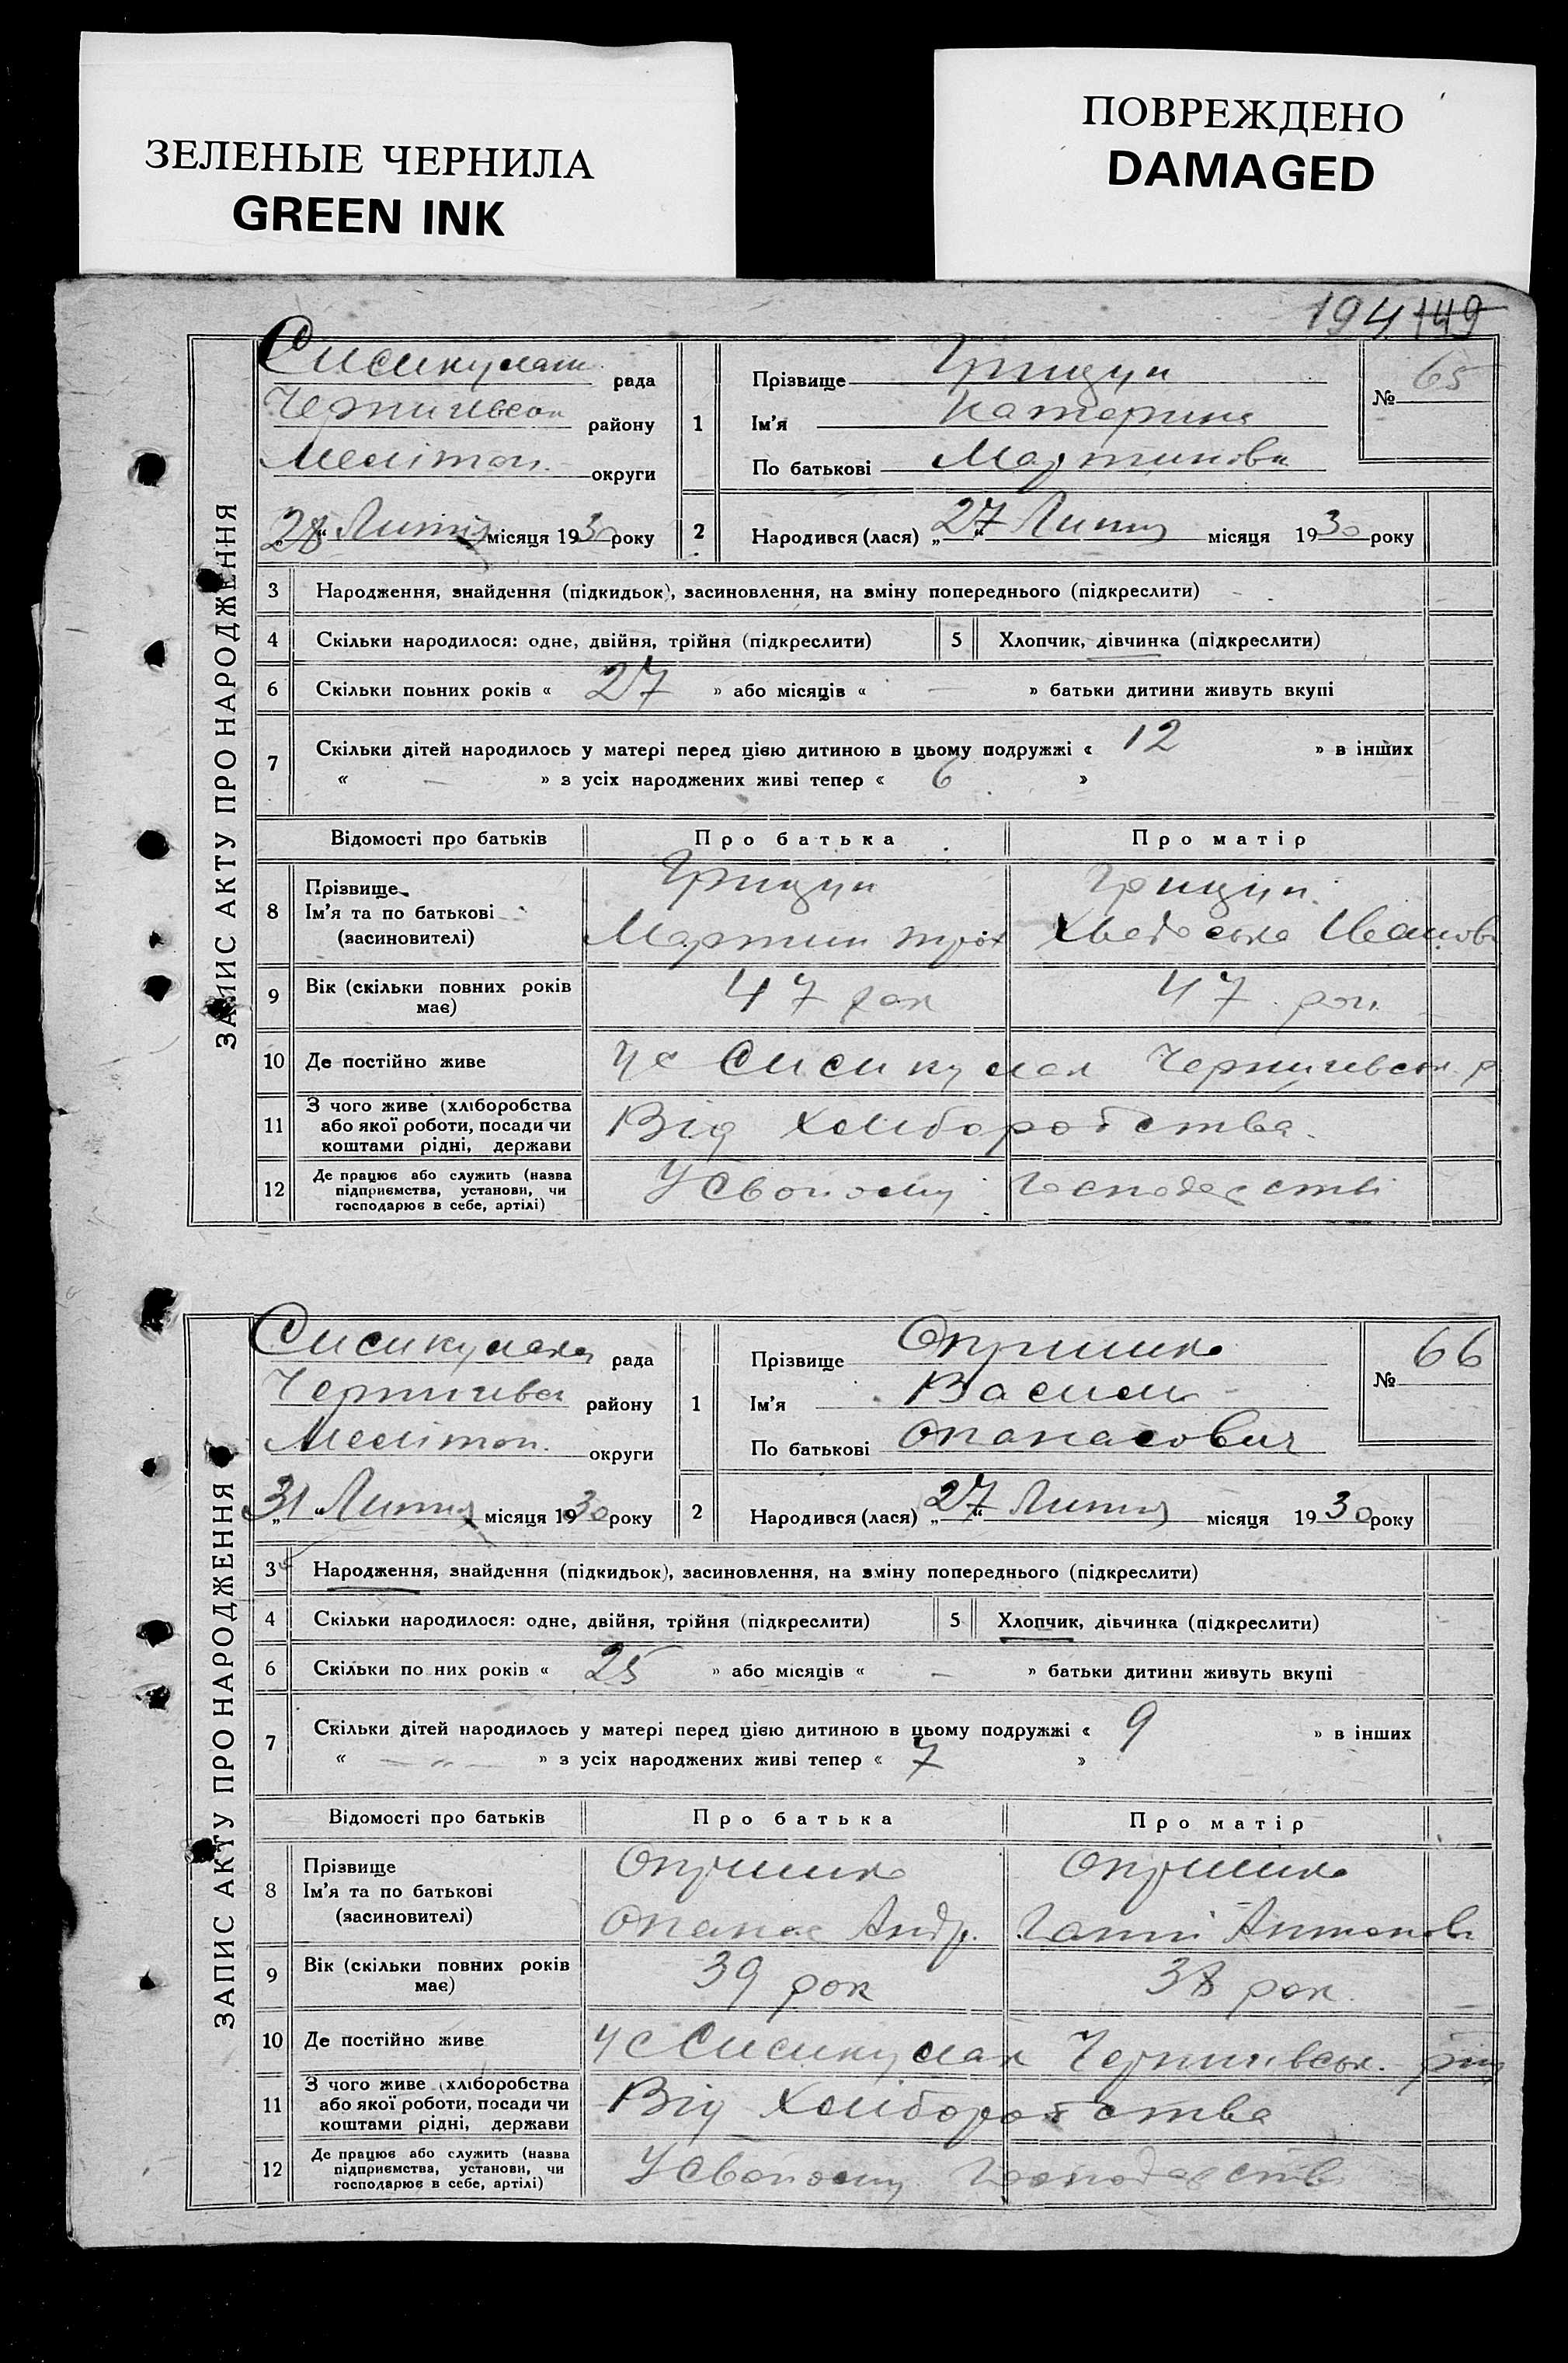 ЗЕЛЕНЫЕ ЧЕРНИЛА
GREEN INK
ПОВРЕЖДЕНО
DAMAGED
194 149
ЗАПИС АКТУ ПРО НАРОДЖЕННЯ
Сисикулак рада
Чернигвсок району
Мелітоп. округи
28 Липня місяця 1930 року
1 Прізвище Грищун
Ім'я Катерина
По батькові Мартиновн
№ 65
2 Народився (лася) „27“ Липня місяця 1930 року
3 Народження, знайдення (підкидьок), засиновлення, на зміну попереднього (підкреслити)
4 Скільки народилося: одне, двійня, трійня (підкреслити) 5 Хлопчик, дівчинка (підкреслити)
6 Скільки повних років « 27 » або місяців « — » батьки дитини живуть вкупі
7 Скільки дітей народилось у матері перед цією дитиною в цьому подружжі « 12 » в інших
« — » з усіх народжених живі тепер « 6 »
Відомості про батьків Про батька Про матір
8 Прізвище Грищун Грищун
Ім'я та по батькові
(засновителі) Мартин Троx Хведоська Иванов
9 Вік (скільки повних років має) 47 рок 47 рок
10 Де постійно живе У с Сисикулак Чернигевськ. р
11 З чого живе (хліборобства або якої роботи, посади чи коштами рідні, держави Від Хліборобства
12 Де працює або служить (назва підприємства, установи, чи господарює в себе, артілі) У своьому Господарстві
ЗАПИС АКТУ ПРО НАРОДЖЕННЯ
Сисикулака рада
Чернигвсь району
Меліtоп. округи
31 Липня місяця 1930 року
1 Прізвище Опришко
Ім'я Василь
По батькові Опанасович
№ 66
2 Народився (лася) „27“ Липня місяця 1930 року
3 Народження, знайдення (підкидьок), засиновлення, на зміну попереднього (підкреслити)
4 Скільки народилося: одне, двійня, трійня (підкреслити) 5 Хлопчик, дівчинка (підкреслити)
6 Скільки по них років « 25 » або місяців « — » батьки дитини живуть вкупі
7 Скільки дітей народилось у матері перед цією дитиною в цьому подружжі « 9 » в інших
« — „ — » з усіх народжених живі тепер « 7 »
Відомості про батьків Про батька Про матір
8 Прізвище Опришко Опришко
Ім'я та по батькові
(засиновителі) Опанас Андр. Ганні Антонов
9 Вік (скільки повних років має) 39 рок 38 рок
10 Де постійно живе У с Сисикулак Чернигвськ. рну
11 З чого живе (хліборобства або якої роботи, посади чи коштами рідні, держави Від Хліборобства
12 Де працює або служить (назва підприємства, установи, чи господарює в себе, артілі) У своьому Господарств